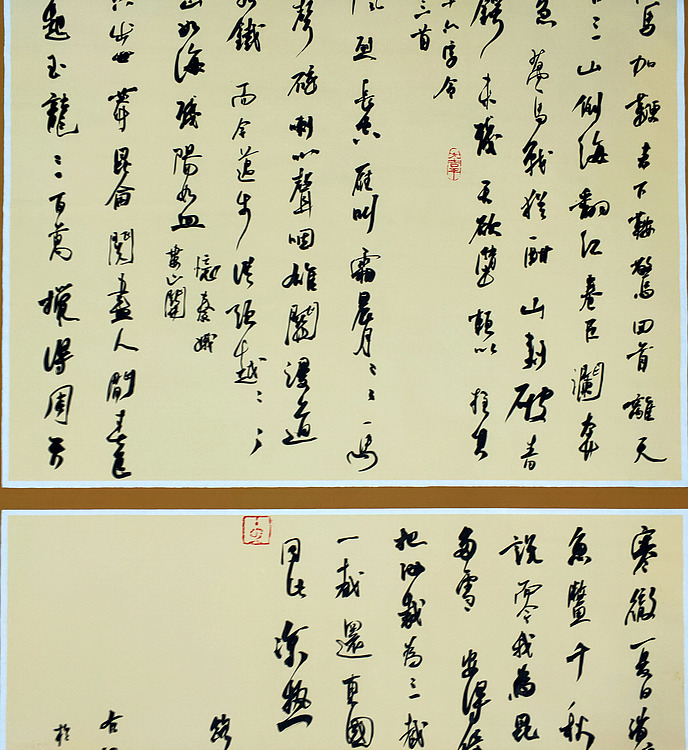 馬加鞭未下鞍驚回首離天
三山倒海翻江卷巨瀾奔
急萬馬戰猶酣山刺破青
鍔未殘天欲墮賴以拄其
十六字令
三首
風烈長空雁叫霜晨月ミミミ馬
聲碎喇叭聲咽雄關漫道
如鐵而今邁步從頭越ミミミ
山如海殘陽如血
憶秦娥
婁山關
出世莽昆侖閱盡人間春色
起玉龍三百萬攪得周天
寒徹夏日消
魚鱉千秋
說而今我為昆
多雪安得倚
把汝裁為三截
一截還東國
同此涼熱